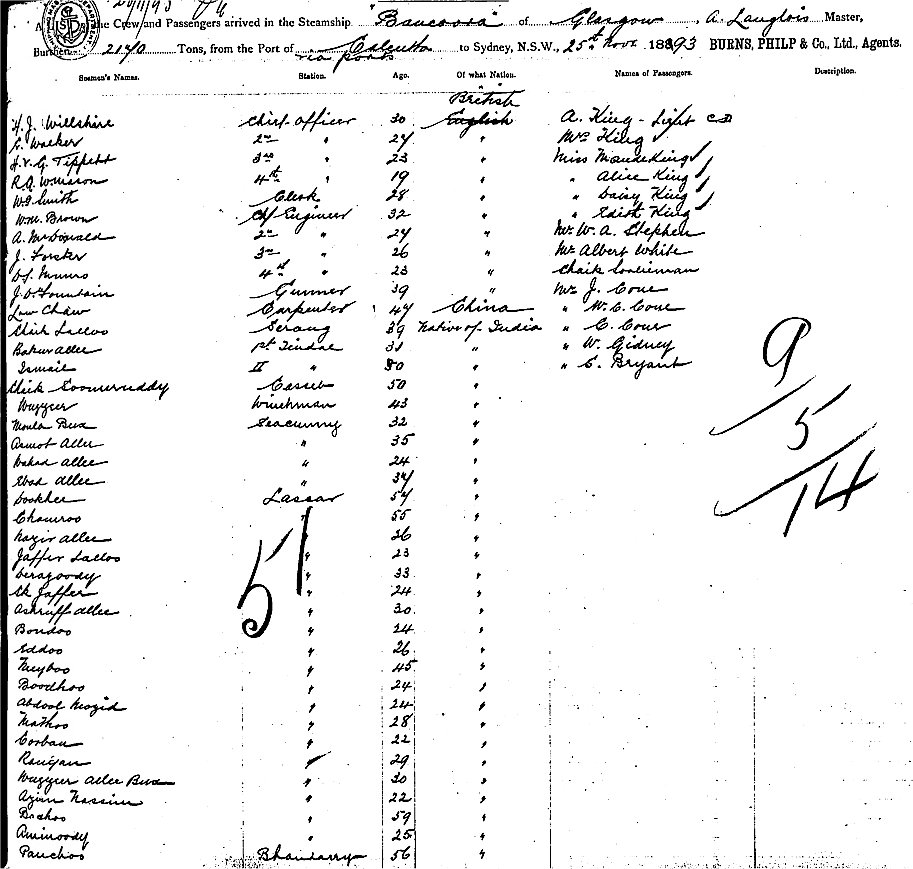 24/11/93
the Crew and Passengers arrived in the Steamship "Bancoora" of Glasgow, A. Langlois Master,
Burthen 2170 Tons, from the Port of Calcutta via ports to Sydney, N.S.W., 25th Novr 1893 BURNS, PHILP & Co., Ltd., Agents.
Seamen's Names. Station. Age. Of what Nation. Names of Passengers. Description.
British
H. J. Willshire Chief Officer 30 English A. King - Light
Walker 2nd " 27 " Mrs King
Tippett 3rd " 23 " Miss Maude King
4th " 19 " " Alice King
W S Smith Clerk 28 " " Daisy King
W.M. Brown Cf Engineer 32 " " Edith King
A. McDonald 2nd " 27 " Mr W. A. Stephen
J. Forster 3rd " 26 " Mr Albert White
Munro 4th " 23 " Chaik
Fountain Gunner 39 " Mr J. Coue
Low Chaw Carpenter 47 China " W. C. Coue
Shick Lalloo Serang 39 Native of India " C. Coue
Bakur Allee 1st Tindal 31 " " W. Gidney
Ismail II " 30 " " C. Bryant
Shick Cassub 50 "
Wuzzeer Winchman 43 "
Moula Bux Seacunny 32 "
Asmot Allee " 35 "
Wahed Allee " 24 "
Ebad Allee " 37 "
Lascar 57 "
Chamroo " 55 "
Nazir Allee " 26 "
Jaffer Lalloo " 23 "
" 33 "
Sk Jaffer " 24 "
Ashruff Allee " 30 "
Bondoo " 24 "
Eddoo " 26 "
" 45 "
Boodhoo " 24 "
Abdool " 24 "
Mathoo " 28 "
Corban " 22 "
" 29 "
Wuzzeer Allee Bux " 30 "
" 22 "
" 59 "
Aminoody " 25 "
Panchoo Bhandarry 56 "
51
9
5
14